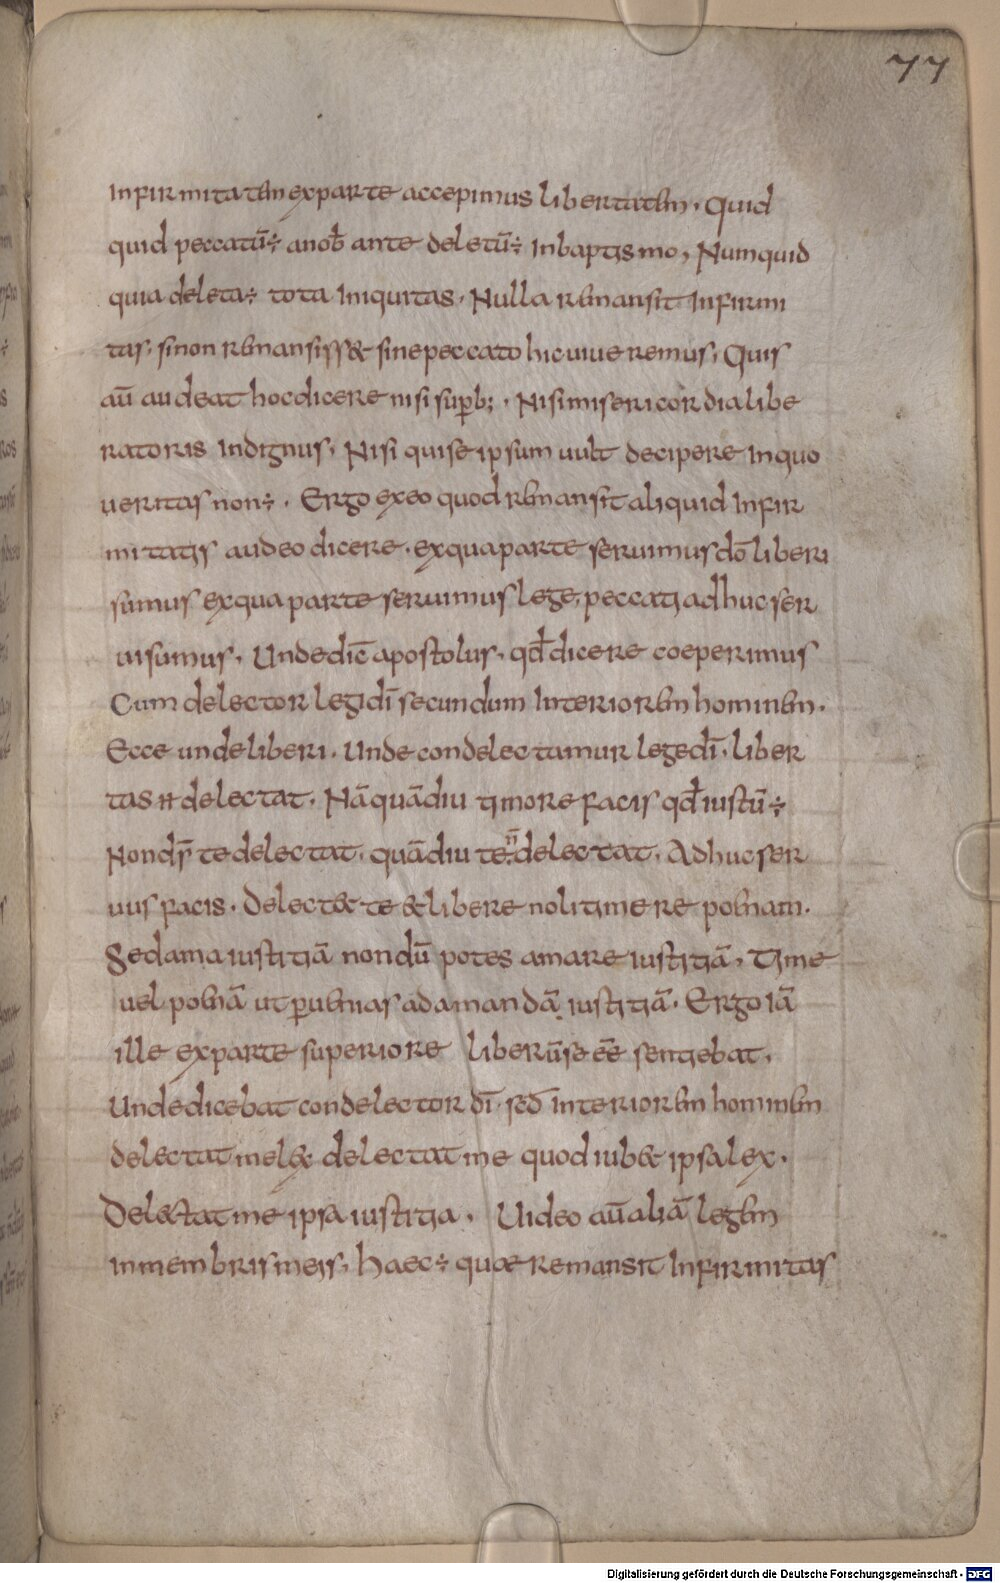 77
infirmitatem exparte accepimus libertatem. Quid
quid peccatū÷ anob̄ ante deletū÷ inbaptismo, Numquid
quia deleta÷ tota iniquitas. Nulla remansit infirmi
tas. sinon remansiss& sinepeccato hic uiueremus. Quis
aū audeat hocdicere nisi sup̄b; . Nisi misericordia libe
ratoris indignus. Nisi quise ipsum uult decipere inquo
ueritas non÷. Ergo exeo quod remansit aliquid infir
mitatis audeo dicere. exquaparte seruimus dō liberi
sumus exqua parte seruimus lege peccati adhuc ser
ui sumus. Undedic̄ apostolus. qd̄ dicere coeperimus
Cum delector legi dī secundum interiorem hominem.
Ecce unde liberi. Unde condelectamur lege dī. liber
tas n̄ delectat. Nā quādiu timore facis qd̄ iustū÷
Non ds̄ te delectat. quādiu te n̄ delectat. Adhuc ser
uus facis. Delect& te & libere noli timere poenam.
Sed ama iustitiā nondū potes amare iustitiā. Time
uel poenā ut p̄uenias ad amandā iustitiā. Ergo iā
ille exparte superiore liberū se eē sentiebat.
Undedicebat condelector dī. sed̄ interiorem hominem
delectat me lex delectat me quod iub& ipsa lex.
Delectat me ipsa iustitia. Uideo aū aliā legem
inmembris meis. Haec÷ quae remansit infirmitas
Digitalisierung gefördert durch die Deutsche Forschungsgemeinschaft - DFG